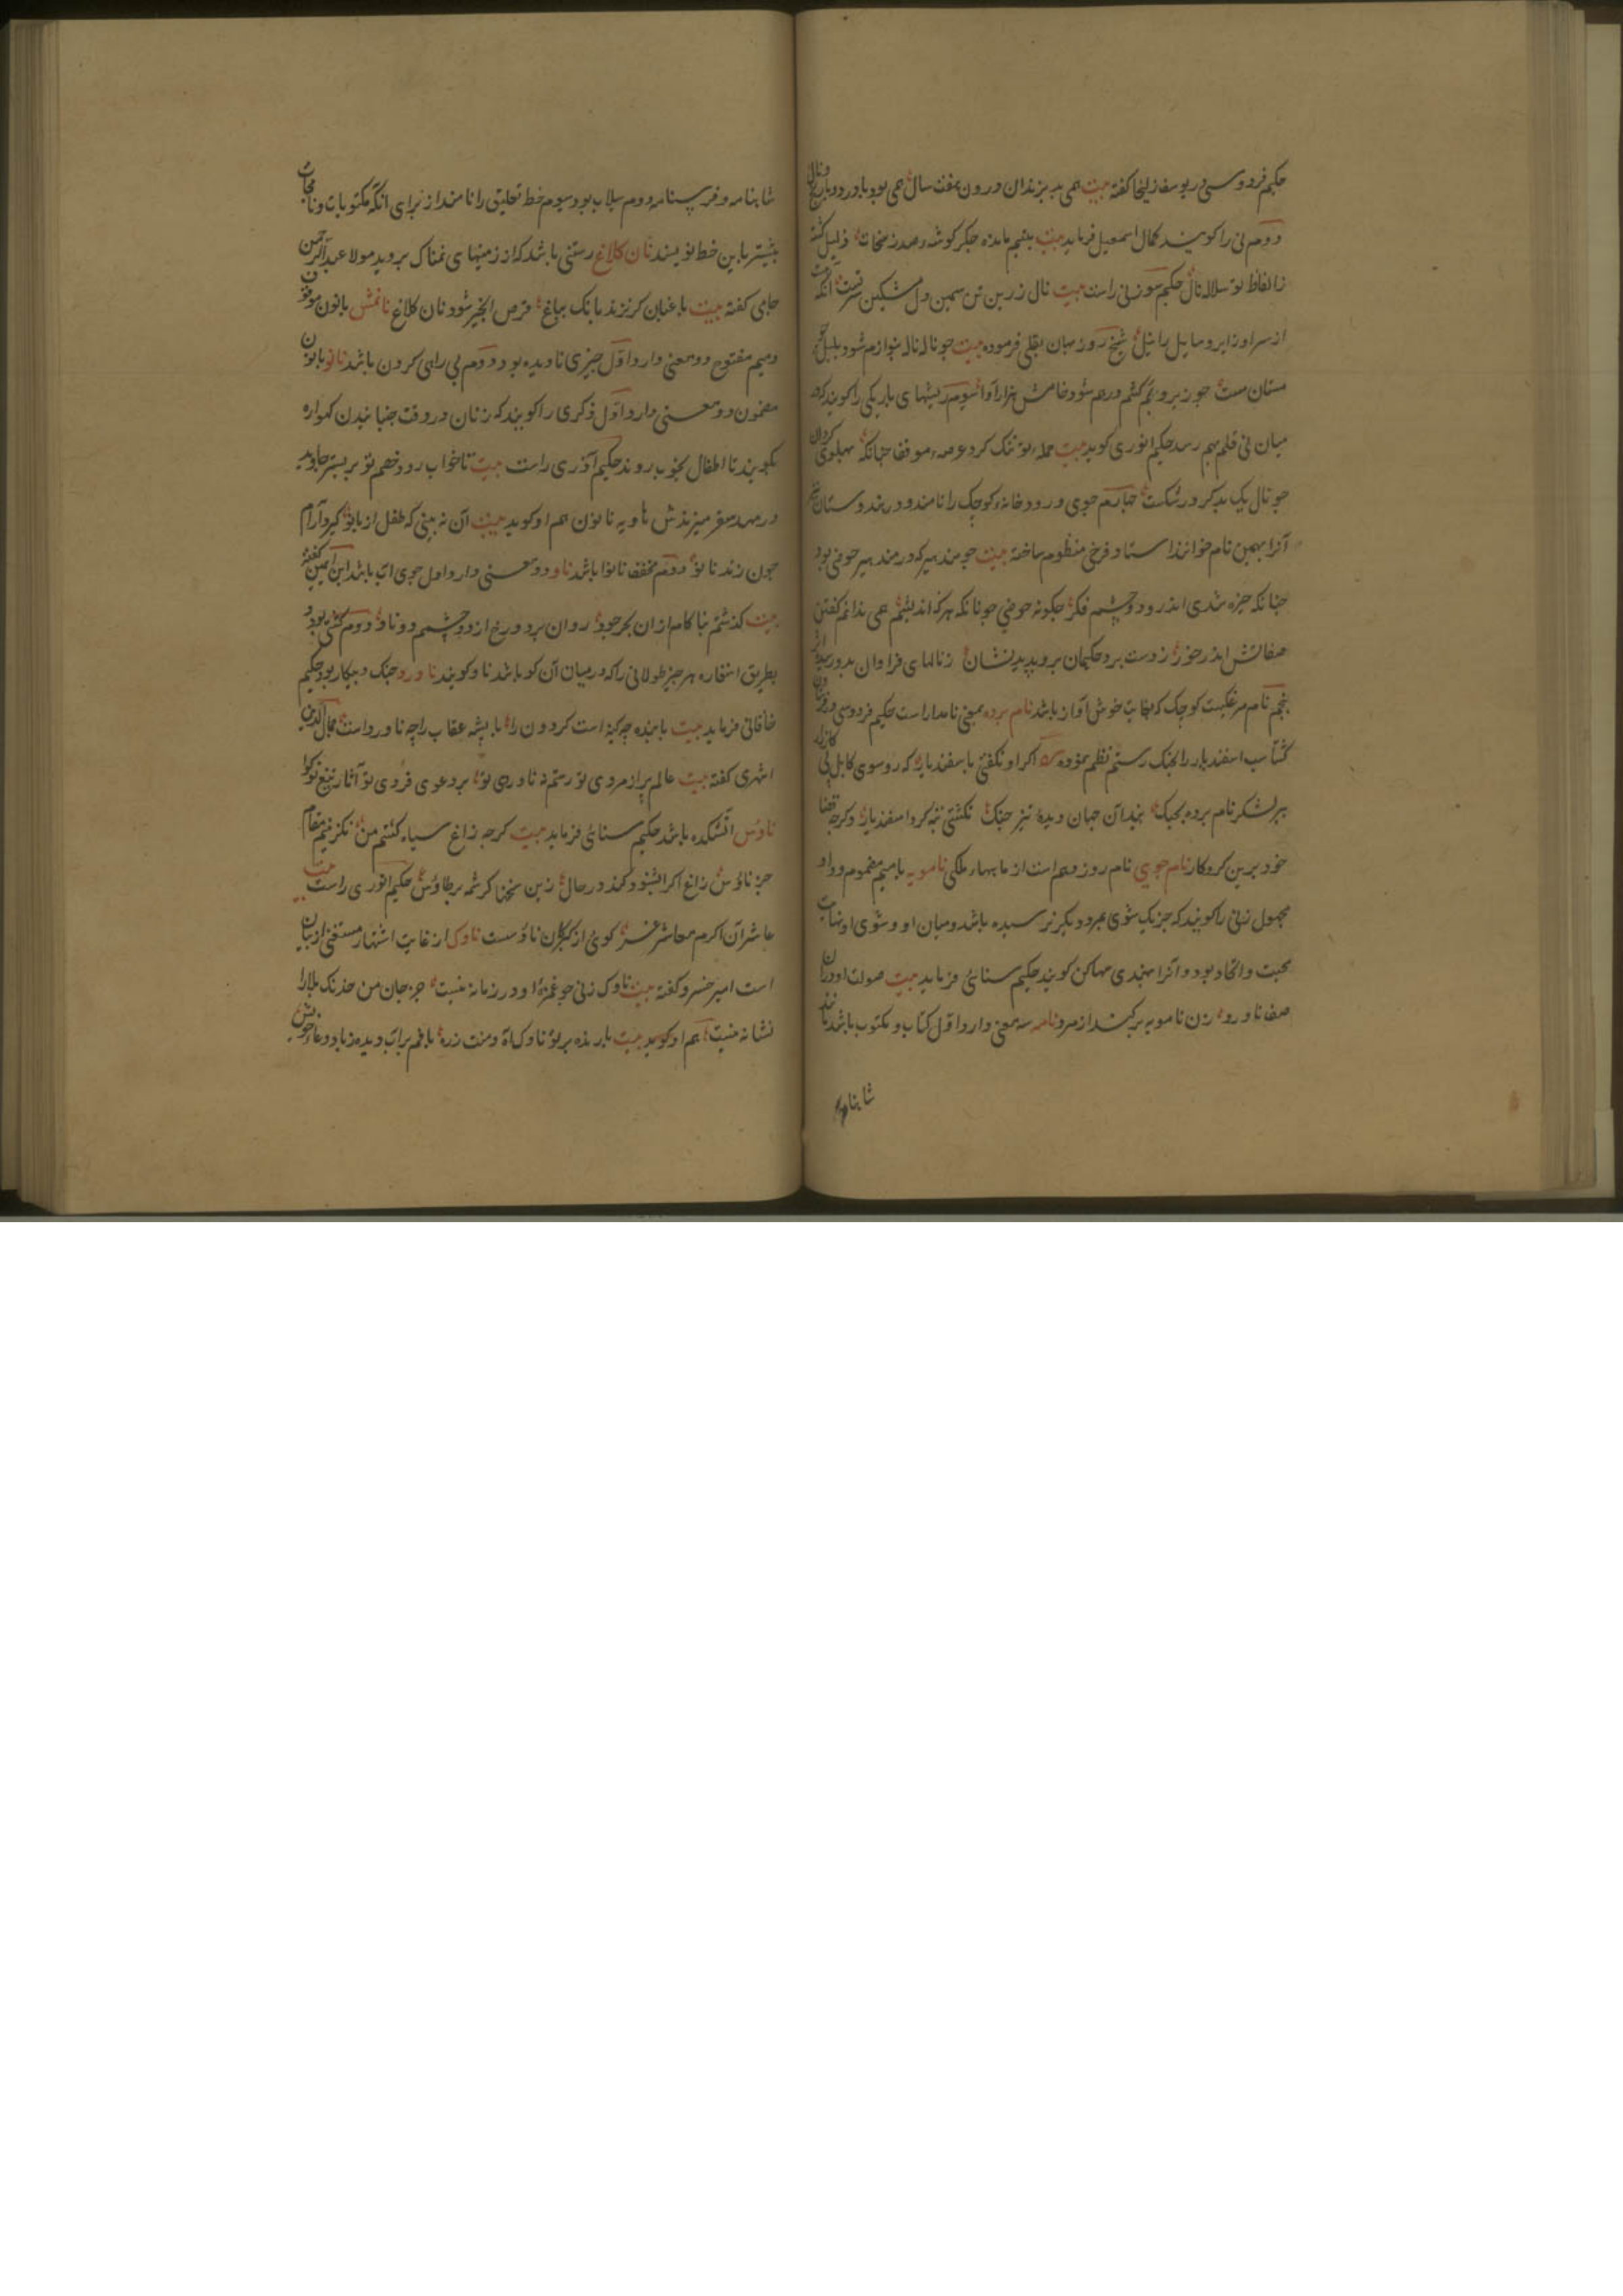 حکیم فردوسی در یوسف زلیخا گفته بیت همی بد بزندان درون هفت سال همی بود با درد و با رنج و نال
دوم نی را گویند کمال اسمعیل فرماید بیت بینم مانده جگر گوشه
ز الفاظ تو سلاله نال حکیم سوزنی راست بیت نال زرین تن سمین دل مشکین سر تست آنکه
از سر او زاید و ماند شیخ روزبهان بقلی فرموده بیت چو نال نال نوازم شود بلبل
مستان مست چو زیر و بم کشم درهم شود خامش هزار آوا سیوم ریشهای باریکی را گویند که از
میان نی قلم بهم رسد حکیم انوری گوید بیت حمله تو تنگ کرد عرصه موقف چنانکه پهلوی گردان
چو نال یک بدگر در شکست چهارم جوی و رودخانه کوچک را نامند و در هندوستان نیز
آنرا بهمین نام خوانند استاد فرخی منظوم ساخته بیت
چنانکه خیره شدی اندرو دو چشم فکر چگونه حوضی چونانکه هر که اندیشم همی ندانم گفتن
صفاتش اندر خور ز دست برد حکیمان برو پدید نشان ز نالهای فراوان بدو رسیده اثر
پنجم نام مرغکیست کوچک که بغایت خوش آواز باشد نام برده بمعنی نامدار است حکیم فردوسی در فرستادن
گشتاسب اسفندیار را بجنگ رستم نظم نموده اگر او نگفتی باسفندیار که رو سوی کابل پی کارزار
ببر لشکر نام برده بجنگ بدان جهان دیده تیز چنگ نگشتی تبه کرد اسفندیار وگرچه قضا
خود برین کرد کار نام جوی نام روز دهم است از ماههای ملکی نامویه با میم مضموم و واو
مجهول زنی را گویند که جز یک شوی بمرد دیگر نرسیده باشد و میان او و شوی او نهایت
محبت و اتحاد بود و آنرا بهندی سهاگن گویند حکیم سنائی فرماید بیت صولت او در آن
صف ناورد زن نامویه برکشد از مرد نامه سه معنی دارد اول کتاب و مکتوب باشد مانند
شاهنامه
شاهنامه و فرسنامه دوم سلاب بود سیوم خط تعلیق را نامند از برای آنکه مکتوبات و نامجات
بیشتر باین خط نویسند نان کلاغ رستنی باشد که از زمینهای نمناک بروید مولانا عبد الرحمن
جامی گفته بیت باغبان گر نزند بانگ بباغ قرص الخیر شود نان کلاغ نانمش بانون موقوف
و میم مفتوح دو معنی دارد اول چیزی نادیده بود و دوم بی راهی کردن باشد نانو بانون
مضموم دو معنی دارد اول ذکری را گویند که زنان در وقت جنبانیدن گهواره
گویند تا اطفال بخواب روند حکیم آذری راست بیت تا خواب رود خصم تو بر بستر جاوید
در مهد سقر میزندش هاویه نانو هم او گوید بیت آن نه بینی که طفل از بانو گیرد آرام
چون زند نانو دوم مخفف نانوا باشد ناو دو معنی دارد اول جوی آب باشد ابن یمین گفته
بیت گذشتم بناکام از آن بحر جود روان بر دو رخ از دو چشمم دو ناو دوم کشتی بود و
بطریق استعاره هر چیز طولانی را که در میان آن گو باشد ناو گویند ناورد جنگ و پیکار بود حکیم
خاقانی فرماید بیت با بنده چه کینه است گردون را با پشه عقاب را چه ناورد است جمال الدین
اشهری گفته بیت عالم پر از مردی تو رستم ناوردی تو بر دعوی فردی تو آثار تیغ تو گوا
ناوس آتشکده باشد حکیم سنائی فرماید بیت گرچه زاغ سیاه گشتم من نگزینم مقام
جز ناوس زاغ اگر بشنود کند در حال زین سخنها کرشمه بر طاوس حکیم انوری راست بیت
عاشر آن اکرم معاشر شر گوئی از گبرکان ناوس است ناوک از غایت اشتهار مستغنی از بیان
است امیر خسرو گفته بیت ناوک زنی چو غمزه او در زمانه نیست جز جان من خدنگ بلا را
نشانه نیست هم او گوید بیت